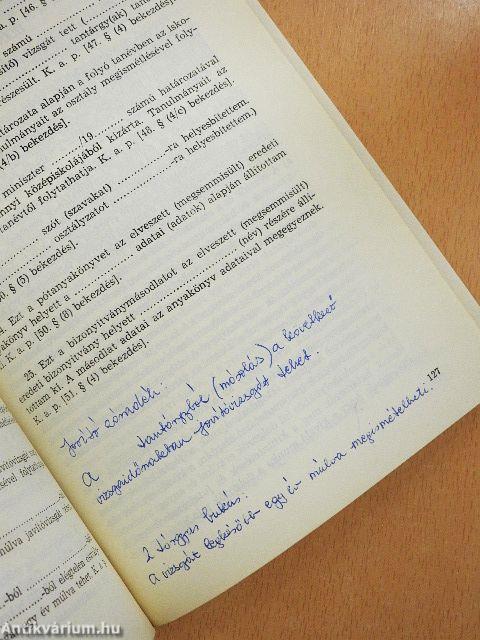 p. [46. §
számú
vizsgát tett (
sító)
tantárgy(ak) tan
vészesült. K. a. p. [47. § (4) bekezdés].
tározata alapján a folyó tanévben az isko-
tanulmányait az osztály megismétlésével foly-
(4/b) bekezdés].
miniszter ........../19...... számú határozatával
nnyi középiskolájából kizárta. Tanulmányait az
tanévtől folytathatja. K. a. p. [48. § (4/c) bekezdés].
szót (szavakat) ............ -ra helyesbítettem.
osztályzatot ............ -ra helyesbítettem.)
§ (5) bekezdés].
4. Ezt a pótanyakönyvet az elveszett (megsemmisült) eredeti
yakönyv helyett a ............ adatai (adatok) alapján állítottam
i. K. a. p. [50. § (6) bekezdés].
25. Ezt a bizonyítványmásodlatot az elveszett (megsemmisült)
eredeti bizonyítvány helyett ............ (név) részére állí-
tottam ki. A másodlat adatai az anyakönyv adataival megegyeznek.
K. a. p. [51. § (4) bekezdés].
Javító záradék:
A tantárgyból (másolás) a következő
vizsgaidőszakban javítóvizsgát tehet.
2 tárgyas bukás:
A vizsgát legkésőbb egy év múlva megismételheti.
127
múlva javítóvizsgát
-ból
-ból) elégtelen
gy év múlva tehet. K.
Antikvárium.hu